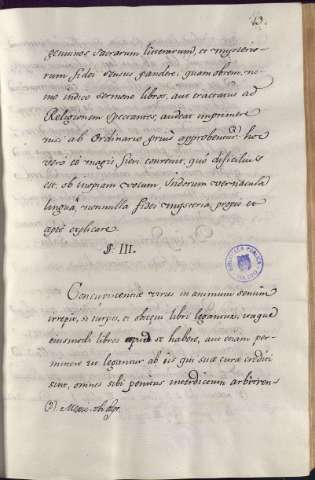 13.
genuinos sacrarum litterarum, et mysterio-
rum fidei sensus pandere, quamobrem, ne-
mo indico sermone libros, aut tractatus ad
Religionem spectantes, audeat imprimere
nisi ab Ordinario prius approbentur: hoc
vero eo magis fieri curetur, quo dificilius
est, ob inopiam vocum Indorum vernacula
lingua, nonnulla fidei mysteria, proprie et
apte explicare.
§. III.
Concupiscentiae virus in animum sensim
irrepit, si turpes, et obsceni libri legantur: itaque
eiusmodi libros apud se habere, aut etiam per-
mittere ut legantur ab iis qui suae curae crediti
sint, omnes sibi penitus interdictum arbitrentur